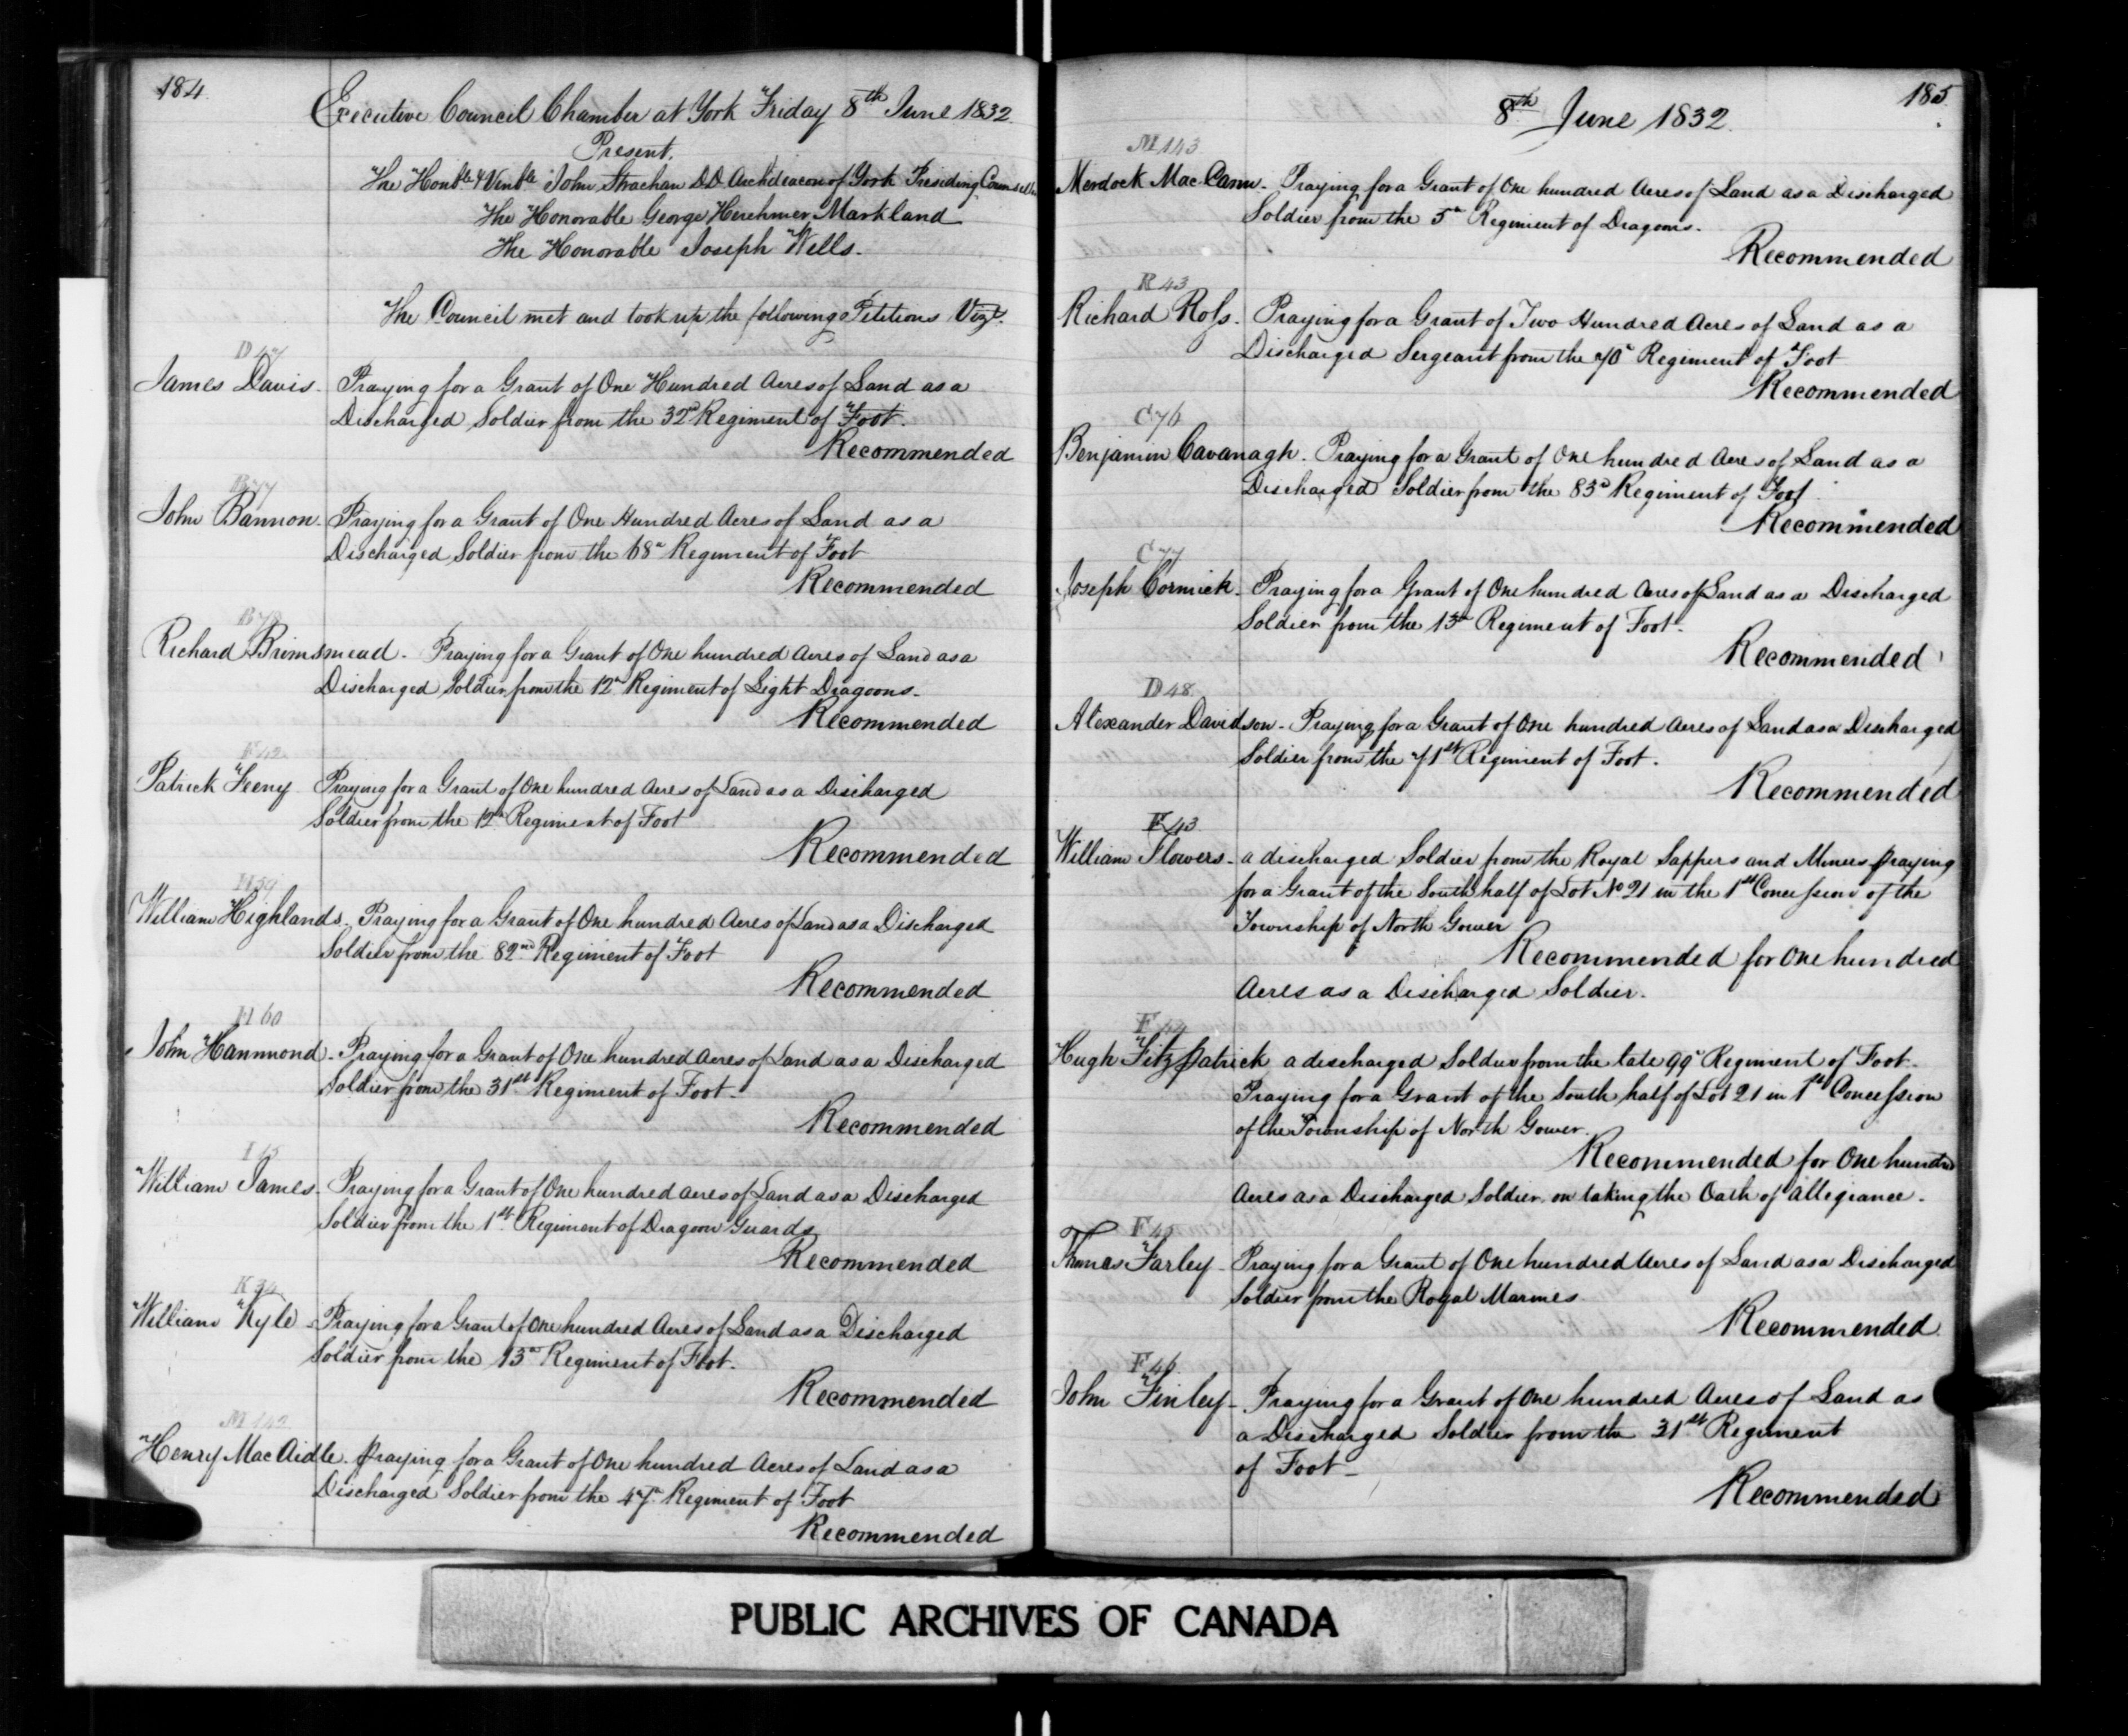 184
Executive Council Chamber at York Friday 8th June 1832
Present.
The Honble & Venble John Strachan D.D. Archdeacon of York Presiding Councillor
The Honorable George Herchmer Markland
The Honorable Joseph Wells.
The Council met and took up the following Petitions Vizt.
D 47
James Davis. Praying for a Grant of One Hundred Acres of Land as a
Discharged Soldier from the 32d Regiment of Foot.
Recommended
B 77
John Bannon. Praying for a Grant of One Hundred Acres of Land as a
Discharged Soldier from the 68th Regiment of Foot
Recommended
B 78
Richard Brimsmead. Praying for a Grant of One hundred Acres of Land as a
Discharged Soldier from the 12th Regiment of Light Dragoons.
Recommended
F 42
Patrick Feeny Praying for a Grant of One hundred Acres of Land as a Discharged
Soldier from the 12th Regiment of Foot
Recommended
H 59
William Highlands. Praying for a Grant of One hundred Acres of Land as a Discharged
Soldier from the 82nd Regiment of Foot
Recommended
H 60
John Hammond. Praying for a Grant of One hundred Acres of Land as a Discharged
Soldier from the 31st Regiment of Foot.
Recommended
I 15
William James. Praying for a Grant of One hundred Acres of Land as a Discharged
Soldier from the 1st Regiment of Dragoon Guards
Recommended
K 34
William Kyle - Praying for a Grant of One hundred Acres of Land as a Discharged
Soldier from the 13th Regiment of Foot.
Recommended
M 142
Henry Mac Aidle. Praying for a Grant of One hundred Acres of Land as a
Discharged Soldier from the 47th Regiment of Foot
Recommended
185
8th June 1832.
M 143
Merdock Mac Cann. Praying for a Grant of One hundred Acres of Land as a Discharged
Soldier from the 5th Regiment of Dragoons.
Recommended
R 43
Richard Ross. Praying for a Grant of Two Hundred Acres of Land as a
Discharged Sergeant from the 70th Regiment of Foot
Recommended
C 76
Benjamin Cavanagh. Praying for a Grant of One hundred Acres of Land as a
Discharged Soldier from the 83d Regiment of Foot
Recommended
C 77
Joseph Cormick. Praying for a Grant of One hundred Acres of Land as a Discharged
Soldier from the 13th Regiment of Foot.
Recommended
D 48
Alexander Davidson. Praying for a Grant of One hundred Acres of Land as a Discharged
Soldier from the 71st Regiment of Foot.
Recommended
F 43
William Flowers - a discharged Soldier from the Royal Sappers and Miners praying
for a Grant of the South half of Lot No 21 in the 1st Concession of the
Township of North Gower
Recommended for One hundred
Acres as a Discharged Soldier.
F 44
Hugh Fitzpatrick a discharged Soldier from the late 99th Regiment of Foot.
Praying for a Grant of the South half of Lot 21 in 1st Concession
of the Township of North Gower.
Recommended for One hundred
Acres as a Discharged Soldier on taking the Oath of Allegiance.
F 45
Thomas Farley - Praying for a Grant of One hundred Acres of Land as a Discharged
Soldier from the Royal Marines
Recommended
F 46
John Finley - Praying for a Grant of One hundred Acres of Land as
a Discharged Soldier from the 31st Regiment
of Foot -
Recommended
PUBLIC ARCHIVES OF CANADA